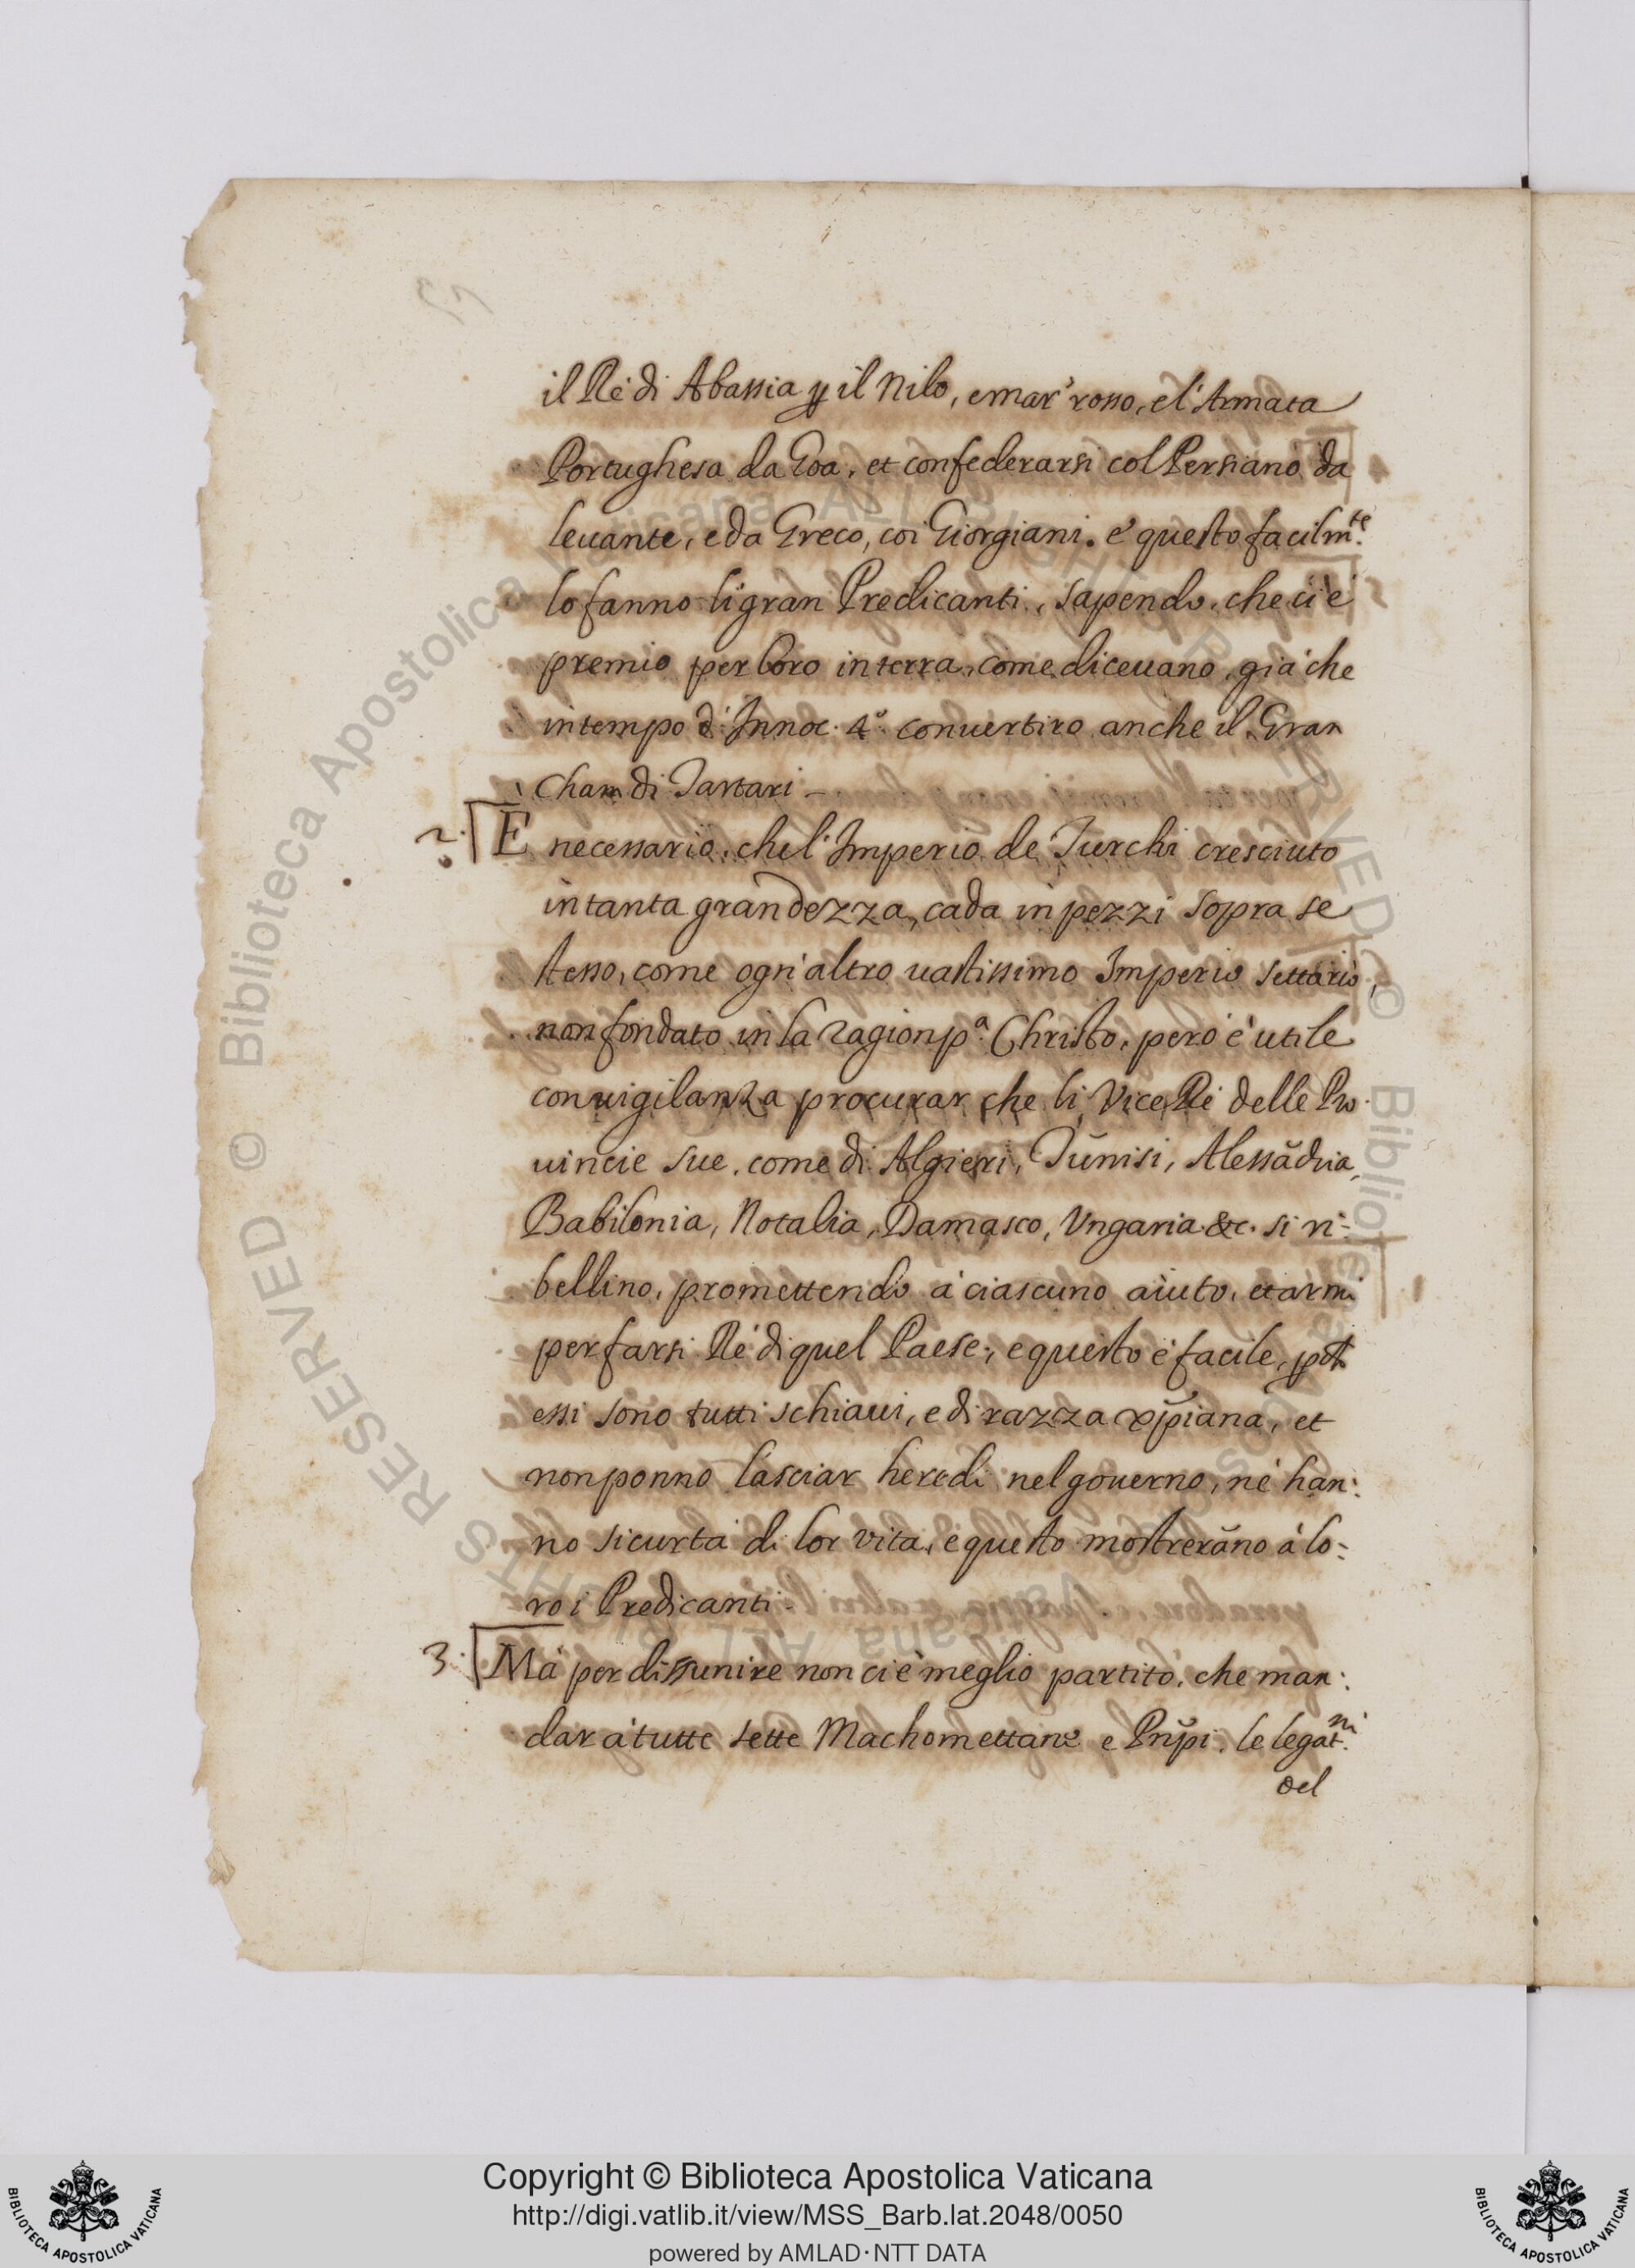 il Rè di Abassia p il Nilo, e mar' rosso, e l'Armata
Portughesa da Goa, et confederarsi col Persiano da
leuante, e da Greco, coi Giorgiani. e questo facilm.te
lo fanno li gran Predicanti, sapendo, che ci è
premio per loro in terra, come diceuano, già che
in tempo d'Innoc. 4.o conuertiro anche il Gran
Cham di Tartari -
2. È necessario, che l'Imperio de Turchi cresciuto
in tanta grandezza, cada in pezzi sopra se
stesso, come ogn'altro uastissimo Imperio settario,
non fondato in la ragion p.a Christo, però è utile
con uigilanza procurar che li Vice Rè delle Pro-
uincie sue, come di Algieri, Tunisi, Alessãdria,
Babilonia, Notalia, Damasco, Vngaria &c. si ri-
bellino, promettendo à ciascuno aiuto, et armi
per farsi Rè di quel Paese; e questo è facile,
essi sono tutti schiaui, e di razza xp̃iana, et
non ponno lasciar heredi nel gouerno, nè han:
no sicurtà di lor vita, e questo mostrerãno à lo:
ro i Predicanti.
3. Mà per dissunire non ci è meglio partito, che man:
dar à tutte sette Machomettane e Prñpi, le legat.ni
del
© Biblioteca Apostolica Vaticana ALL RIGHTS RESERVED © Biblioteca Apostolica Vaticana ALL RIGHTS RESERVED
Copyright © Biblioteca Apostolica Vaticana
http://digi.vatlib.it/view/MSS_Barb.lat.2048/0050
powered by AMLAD·NTT DATA
BIBLIOTECA APOSTOLICA VATICANA
BIBLIOTECA APOSTOLICA VATICANA